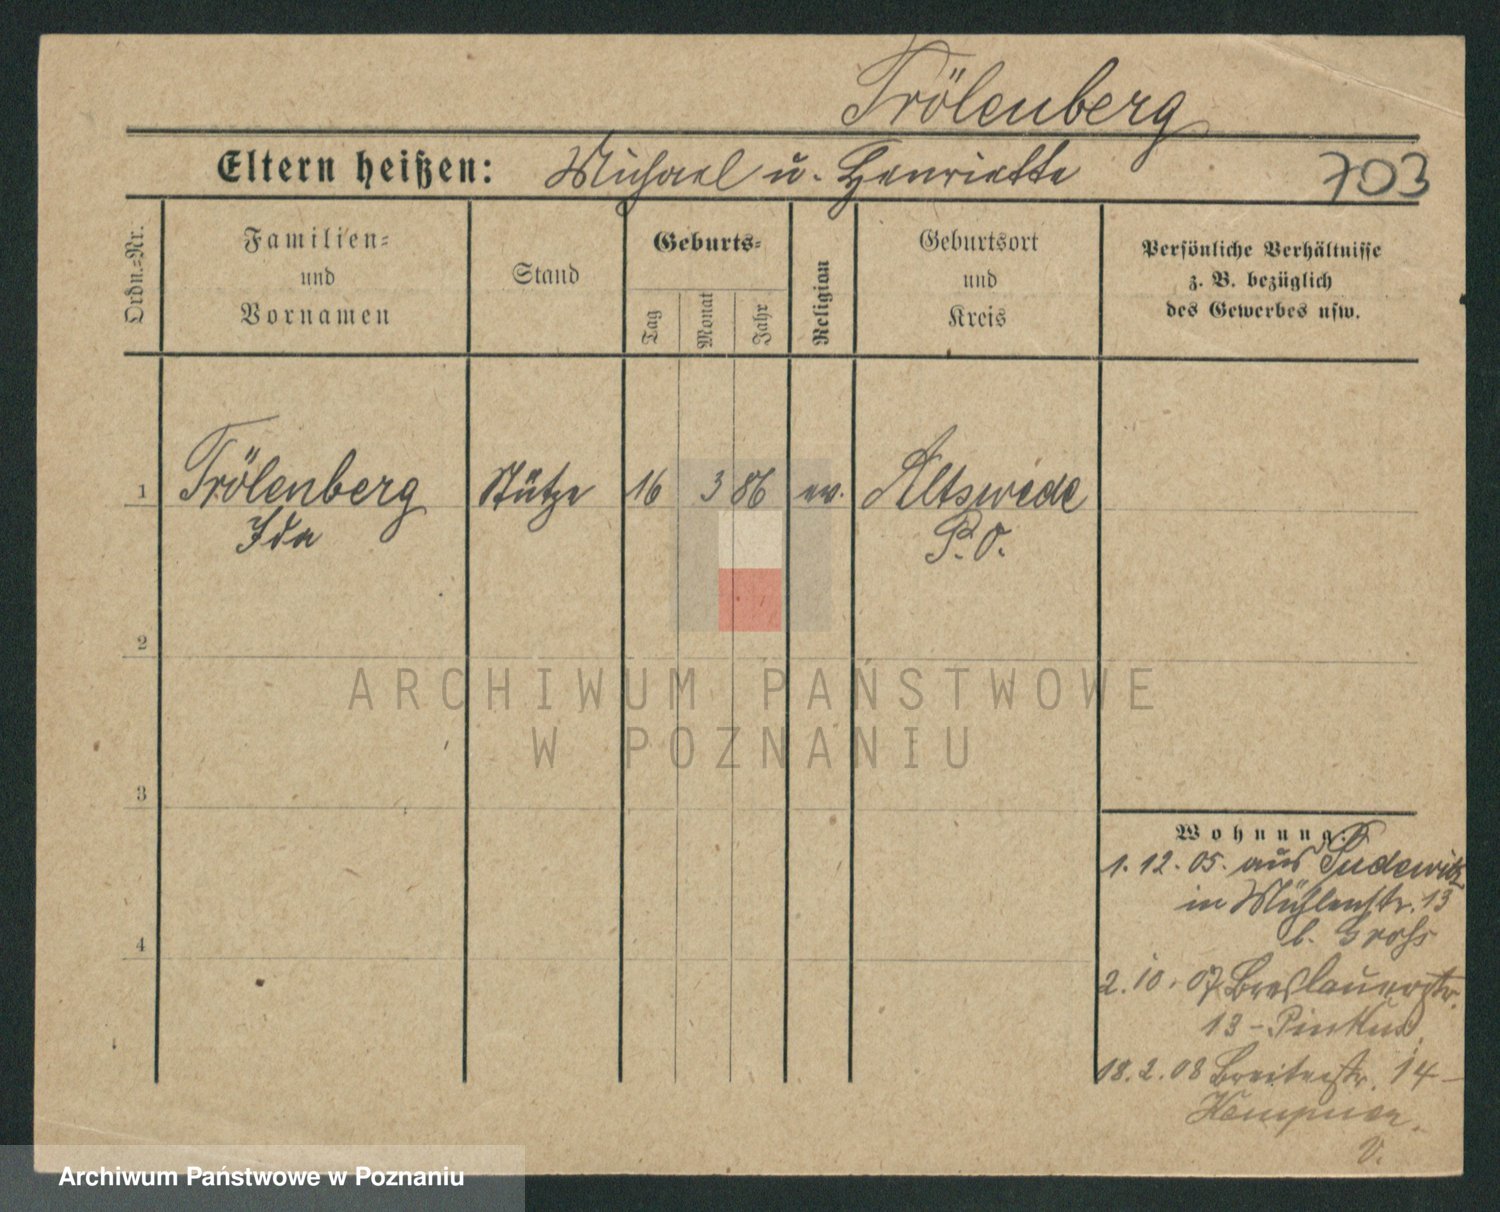 Trölenberg
Eltern heißen: Michael u. Henriette 703
Ordn.-Nr.
Familien-
und
Vornamen
Stand
Geburts-
Tag
Monat
Jahr
Religion
Geburtsort
und
Kreis
Persönliche Verhältnisse
z. B. bezüglich
des Gewerbes usw.
1 Trölenberg Stütze 16 3 86 ev. Altswede
Ida P. O.
2
ARCHIWUM PAŃSTWOWE
W POZNANIU
3
Wohnung:
1. 12. 05. aus Pudewitz
in Mühlenstr. 13
b. Gross
4
2. 10. 07 Breslauerstr.
13 - Pinkus
18. 2. 08 Breitestr. 14 -
Kempner.
V.
Archiwum Państwowe w Poznaniu